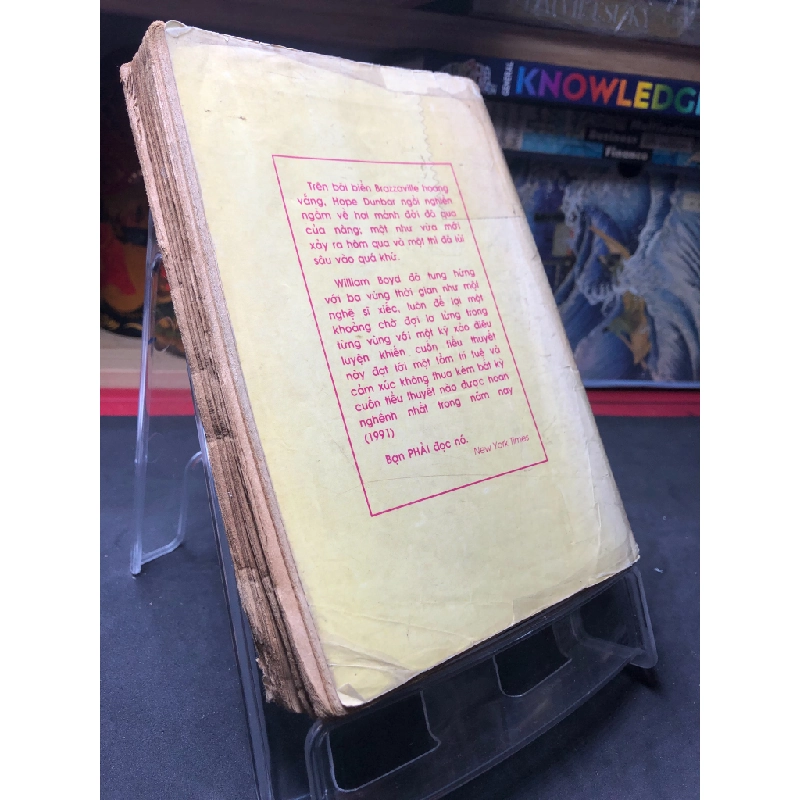 GENERAL KNOWLEDGE
Business
Finance
Trên bãi biển Brazzaville hoang
vắng, Hope Dunbar ngồi nghiền
ngẫm về hai mảnh đời đã qua
của nàng; một như vừa mới
xảy ra hôm qua và một thì đã lùi
sâu vào quá khứ.
William Boyd đã tung hứng
với ba vùng thời gian như một
nghệ sĩ xiếc, luôn để lại một
khoảng chờ đợi lơ lửng trong
từng vùng với một kỹ xảo điêu
luyện khiến cuốn tiểu thuyết
này đạt tới một tầm trí tuệ và
cảm xúc không thua kém bất kỳ
cuốn tiểu thuyết nào được hoan
nghênh nhất trong năm nay
(1991)
Bạn PHẢI đọc nó.
New York Times